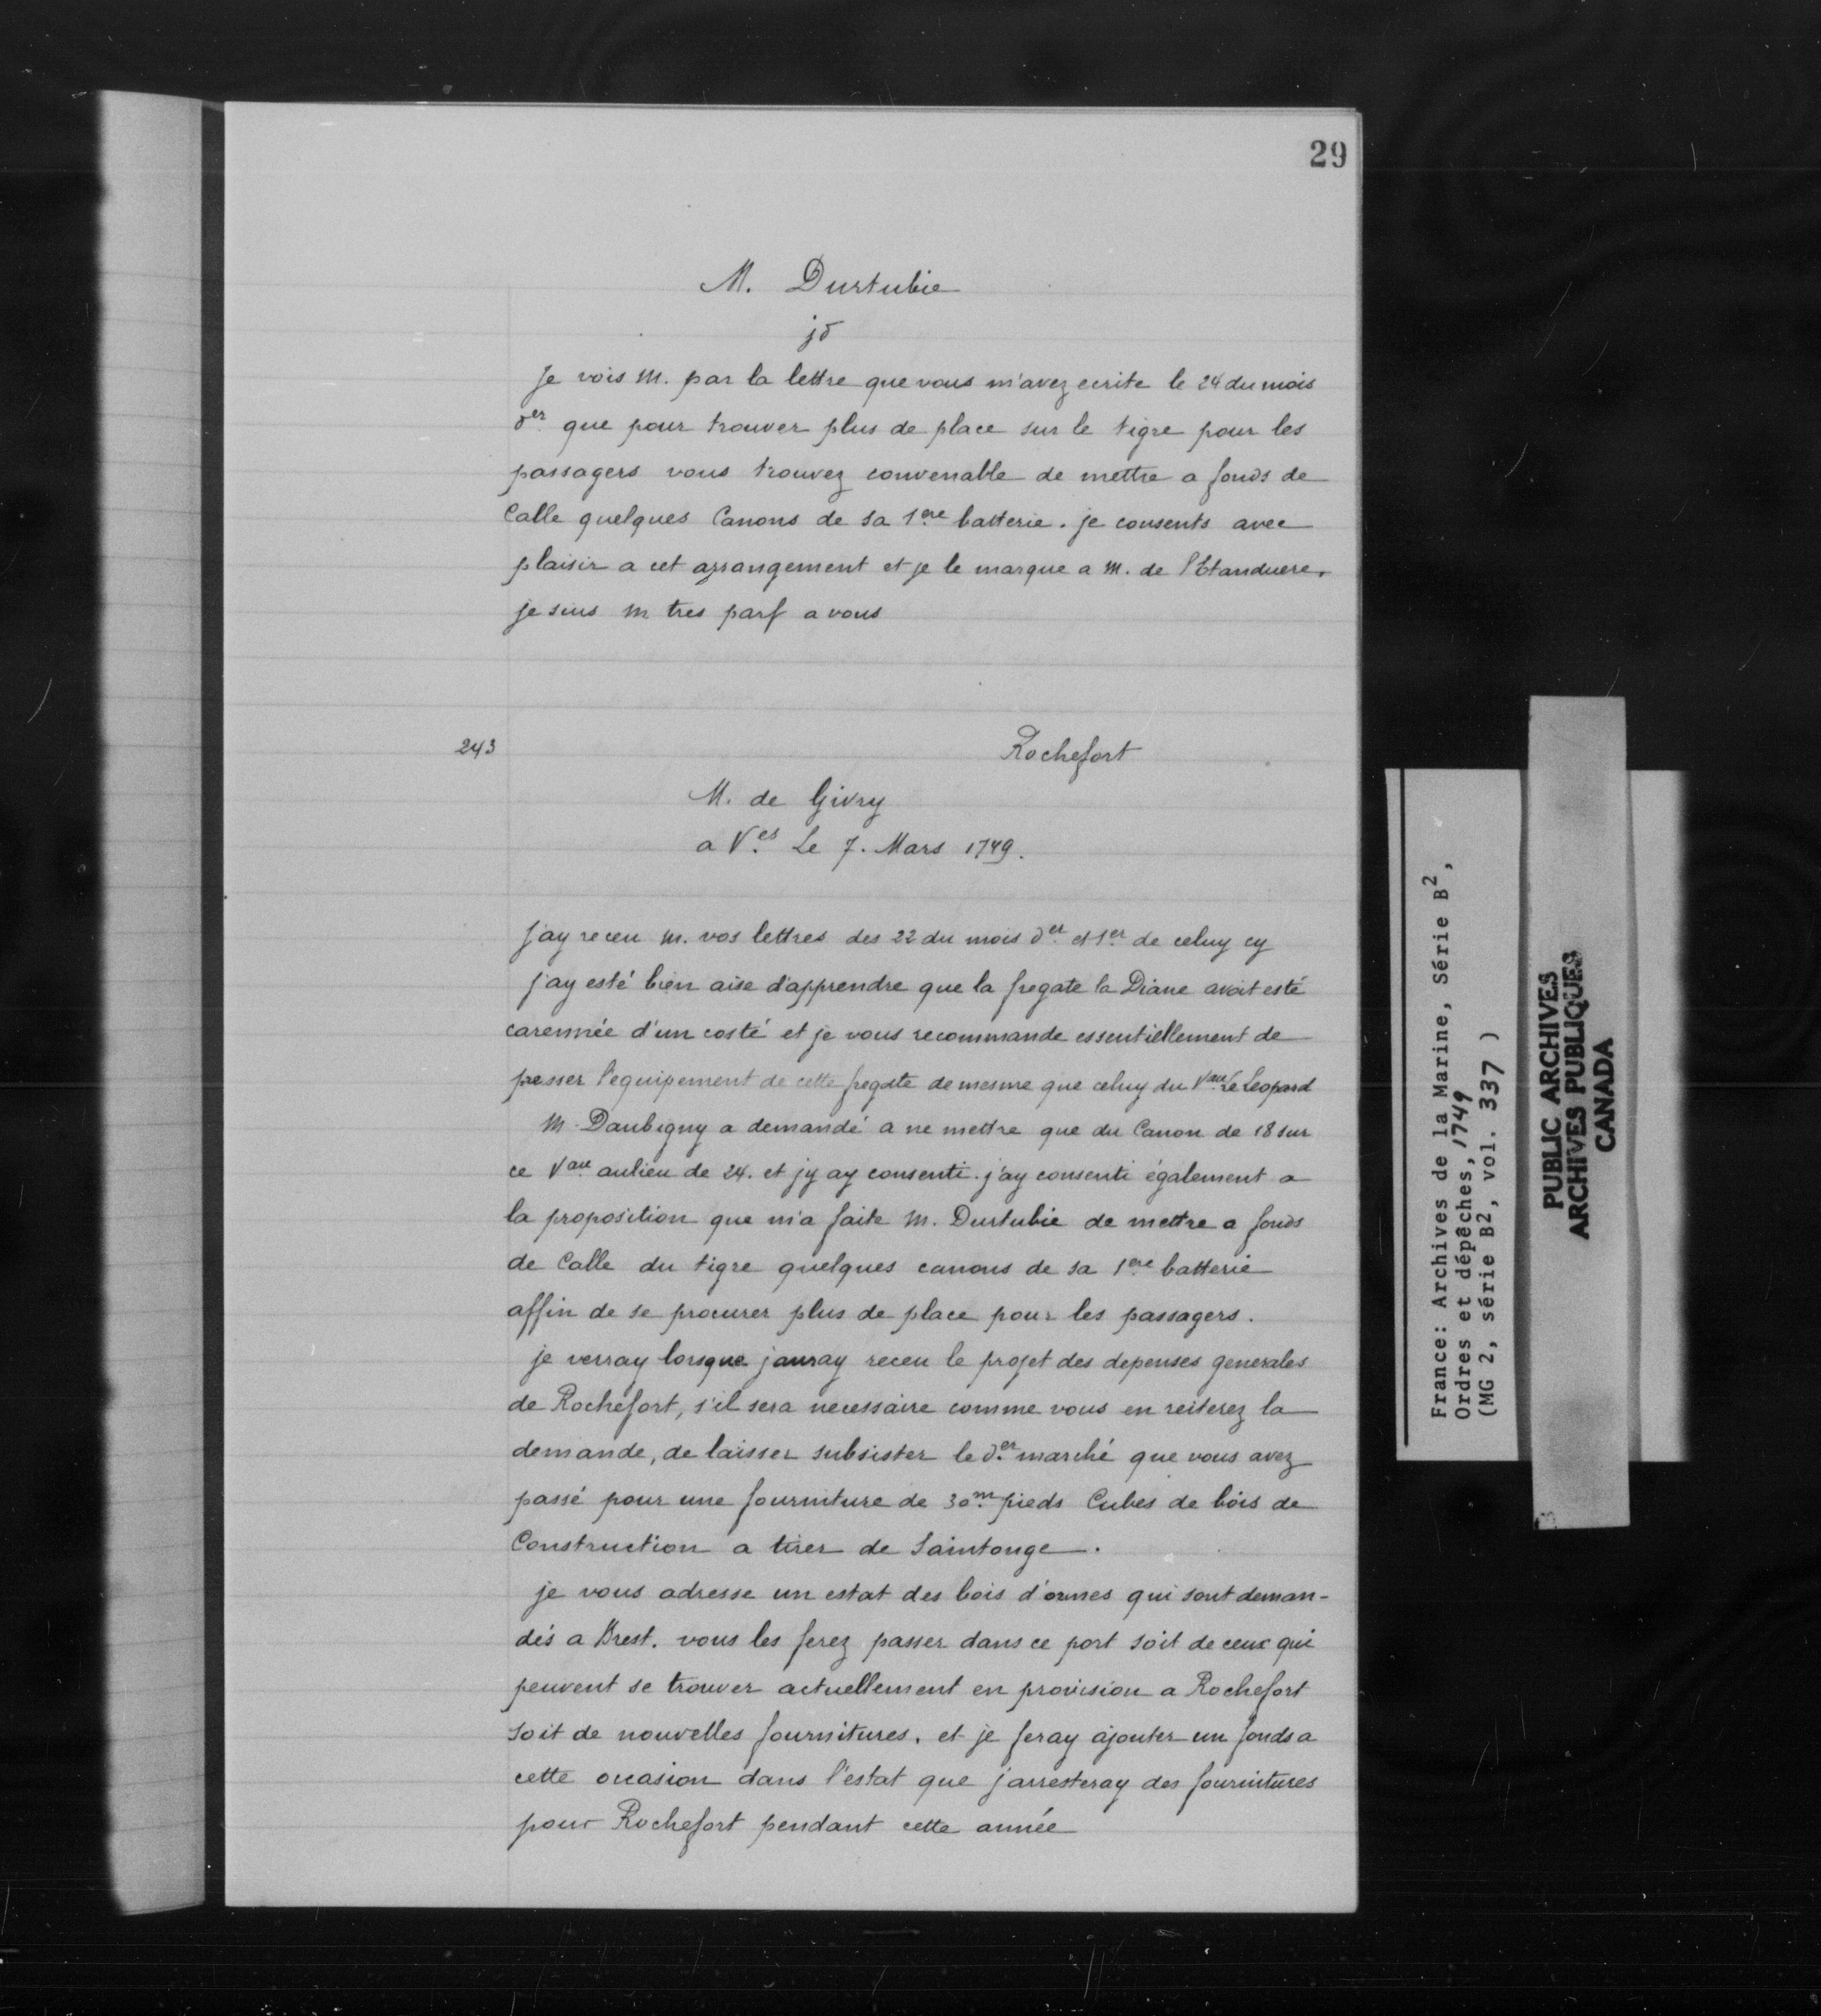 29
M. Durtubie
jd
Je vois M. par la lettre que vous m'avez ecrite le 24 du mois
der que pour trouver plus de place sur le tigre pour les
passagers vous trouvez convenable de mettre a fonds de
Calle quelques Canons de sa 1ere batterie. je consents avec
plaisir a cet arrangement et je le marque a M. de l'Etanduere.
je suis m tres parf a vous
243
Rochefort
M. de Givry
a Ves Le 7. Mars 1749.
J'ay receu M. vos lettres des 22 du mois der et 1er de celuy cy
j'ay esté bien aise d'apprendre que la fregate la Diane avoit esté
carennée d'un costé et je vous recommande essentiellement de
presser l'equipement de cette fregate de mesme que celuy du Vau le Leopard
M. Daubigny a demandé a ne mettre que du Canon de 18 sur
ce Vau aulieu de 24. et jy ay consenti. j'ay consenti également a
la proposition que m'a faite M. Durtubie de mettre a fonds
de Calle du tigre quelques canons de sa 1ere batterie
affin de se procurer plus de place pour les passagers.
je verray lorsque jauray receu le projet des depenses generales
de Rochefort, s'il sera necessaire comme vous en reiterez la
demande, de laisser subsister le der marché que vous avez
passé pour une fourniture de 30m pieds Cubes de bois de
Construction a tirer de Saintonge.
je vous adresse un estat des bois d'ormes qui sont deman-
dés a Brest. vous les ferez passer dans ce port soit de ceux qui
peuvent se trouver actuellement en provision a Rochefort
soit de nouvelles fournitures. et je feray ajouter un fonds a
cette occasion dans l'estat que j'arresteray des fournitures
pour Rochefort pendant cette année
France: Archives de la Marine, Série B2,
Ordres et dépêches, 1749
(MG 2, série B2, vol. 337 )
PUBLIC ARCHIVES
ARCHIVES PUBLIQUES
CANADA